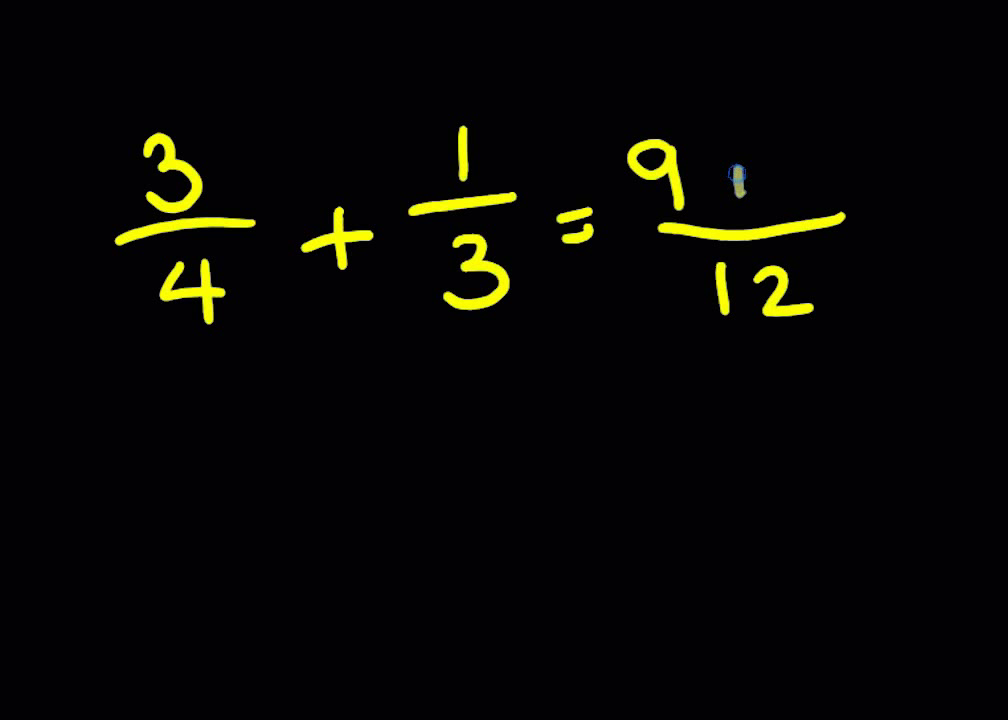 3/4 + 1/3 = 9/12